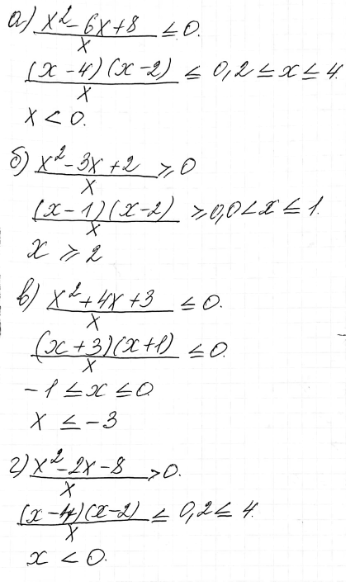 а) x² - 6x + 8 / x ≤ 0.
(x - 4)(x - 2) / x ≤ 0, 2 ≤ x ≤ 4.
x < 0.
б) x² - 3x + 2 / x ≥ 0
(x - 1)(x - 2) / x ≥ 0, 0 < x ≤ 1.
x ≥ 2
в) x² + 4x + 3 / x ≤ 0.
(x + 3)(x + 1) / x ≤ 0.
-1 ≤ x ≤ 0
x ≤ -3
г) x² - 2x - 8 / x > 0.
(x - 4)(x - 2) / x ≤ 0, 2 ≤ 4.
x < 0.